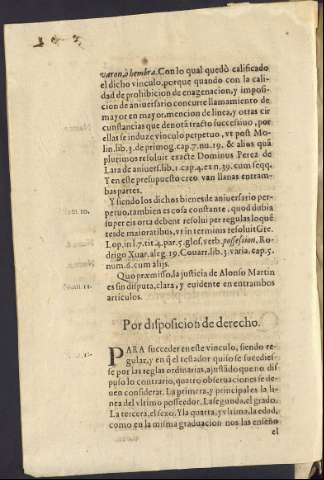 varon, ò hembra. Con lo qual quedò calificado
el dicho vinculo, porque quando con la cali-
dad de prohibicion de enagenacion, y imposi-
cion de aniuersario concurre llamamiento de
mayor en mayor, mencion de linea, y otras cir
cunstancias que denotã tracto successiuo, por
ellas se induze vinculo perpetuo, vt post Mo-
lin. lib. 3. de primog. cap. 7. nu. 19. & alios quã
plurimos resoluit exacte Dominus Perez de
Lara de aniuers. lib. 1. cap. 4. ex n. 39. cum seqq.
Y en este presupuesto creo van llanas entram-
bas partes.
Num. 10.
Y siendo los dichos bienes de aniuersario per-
petuo, tambien es cosa constante, quod dubia
super eis orta debent resolui per regulas loquẽ
tes de maioratibus, vt in terminis resoluit Gre
Lop. in l. 7. tit. 4. par. 5. glos. verb. possession, Ro-
drigo Xuar. aleg. 19. Couarr. lib. 3. varia. cap. 5.
num. 6. cum alijs.
Num. 11.
Quo præmisso, la justicia de Alonso Martin
es sin disputa, clara, y euidente en entrambos
articulos.
Por disposicion de derecho.
PARA succeder en este vinculo, siendo re-
gular, y en q̃ el testador quiso se sucedies-
se por las reglas ordinarias, ajustãdo que no dis
puso lo contrario, quatro obseruaciones se de-
uen considerar. La primera, y principal es la li-
nea del vltimo posseedor. La segunda, el grado.
La tercera, el sexo. Y la quarta, y vltima, la edad,
como en la misma graduacion nos las enseño
el